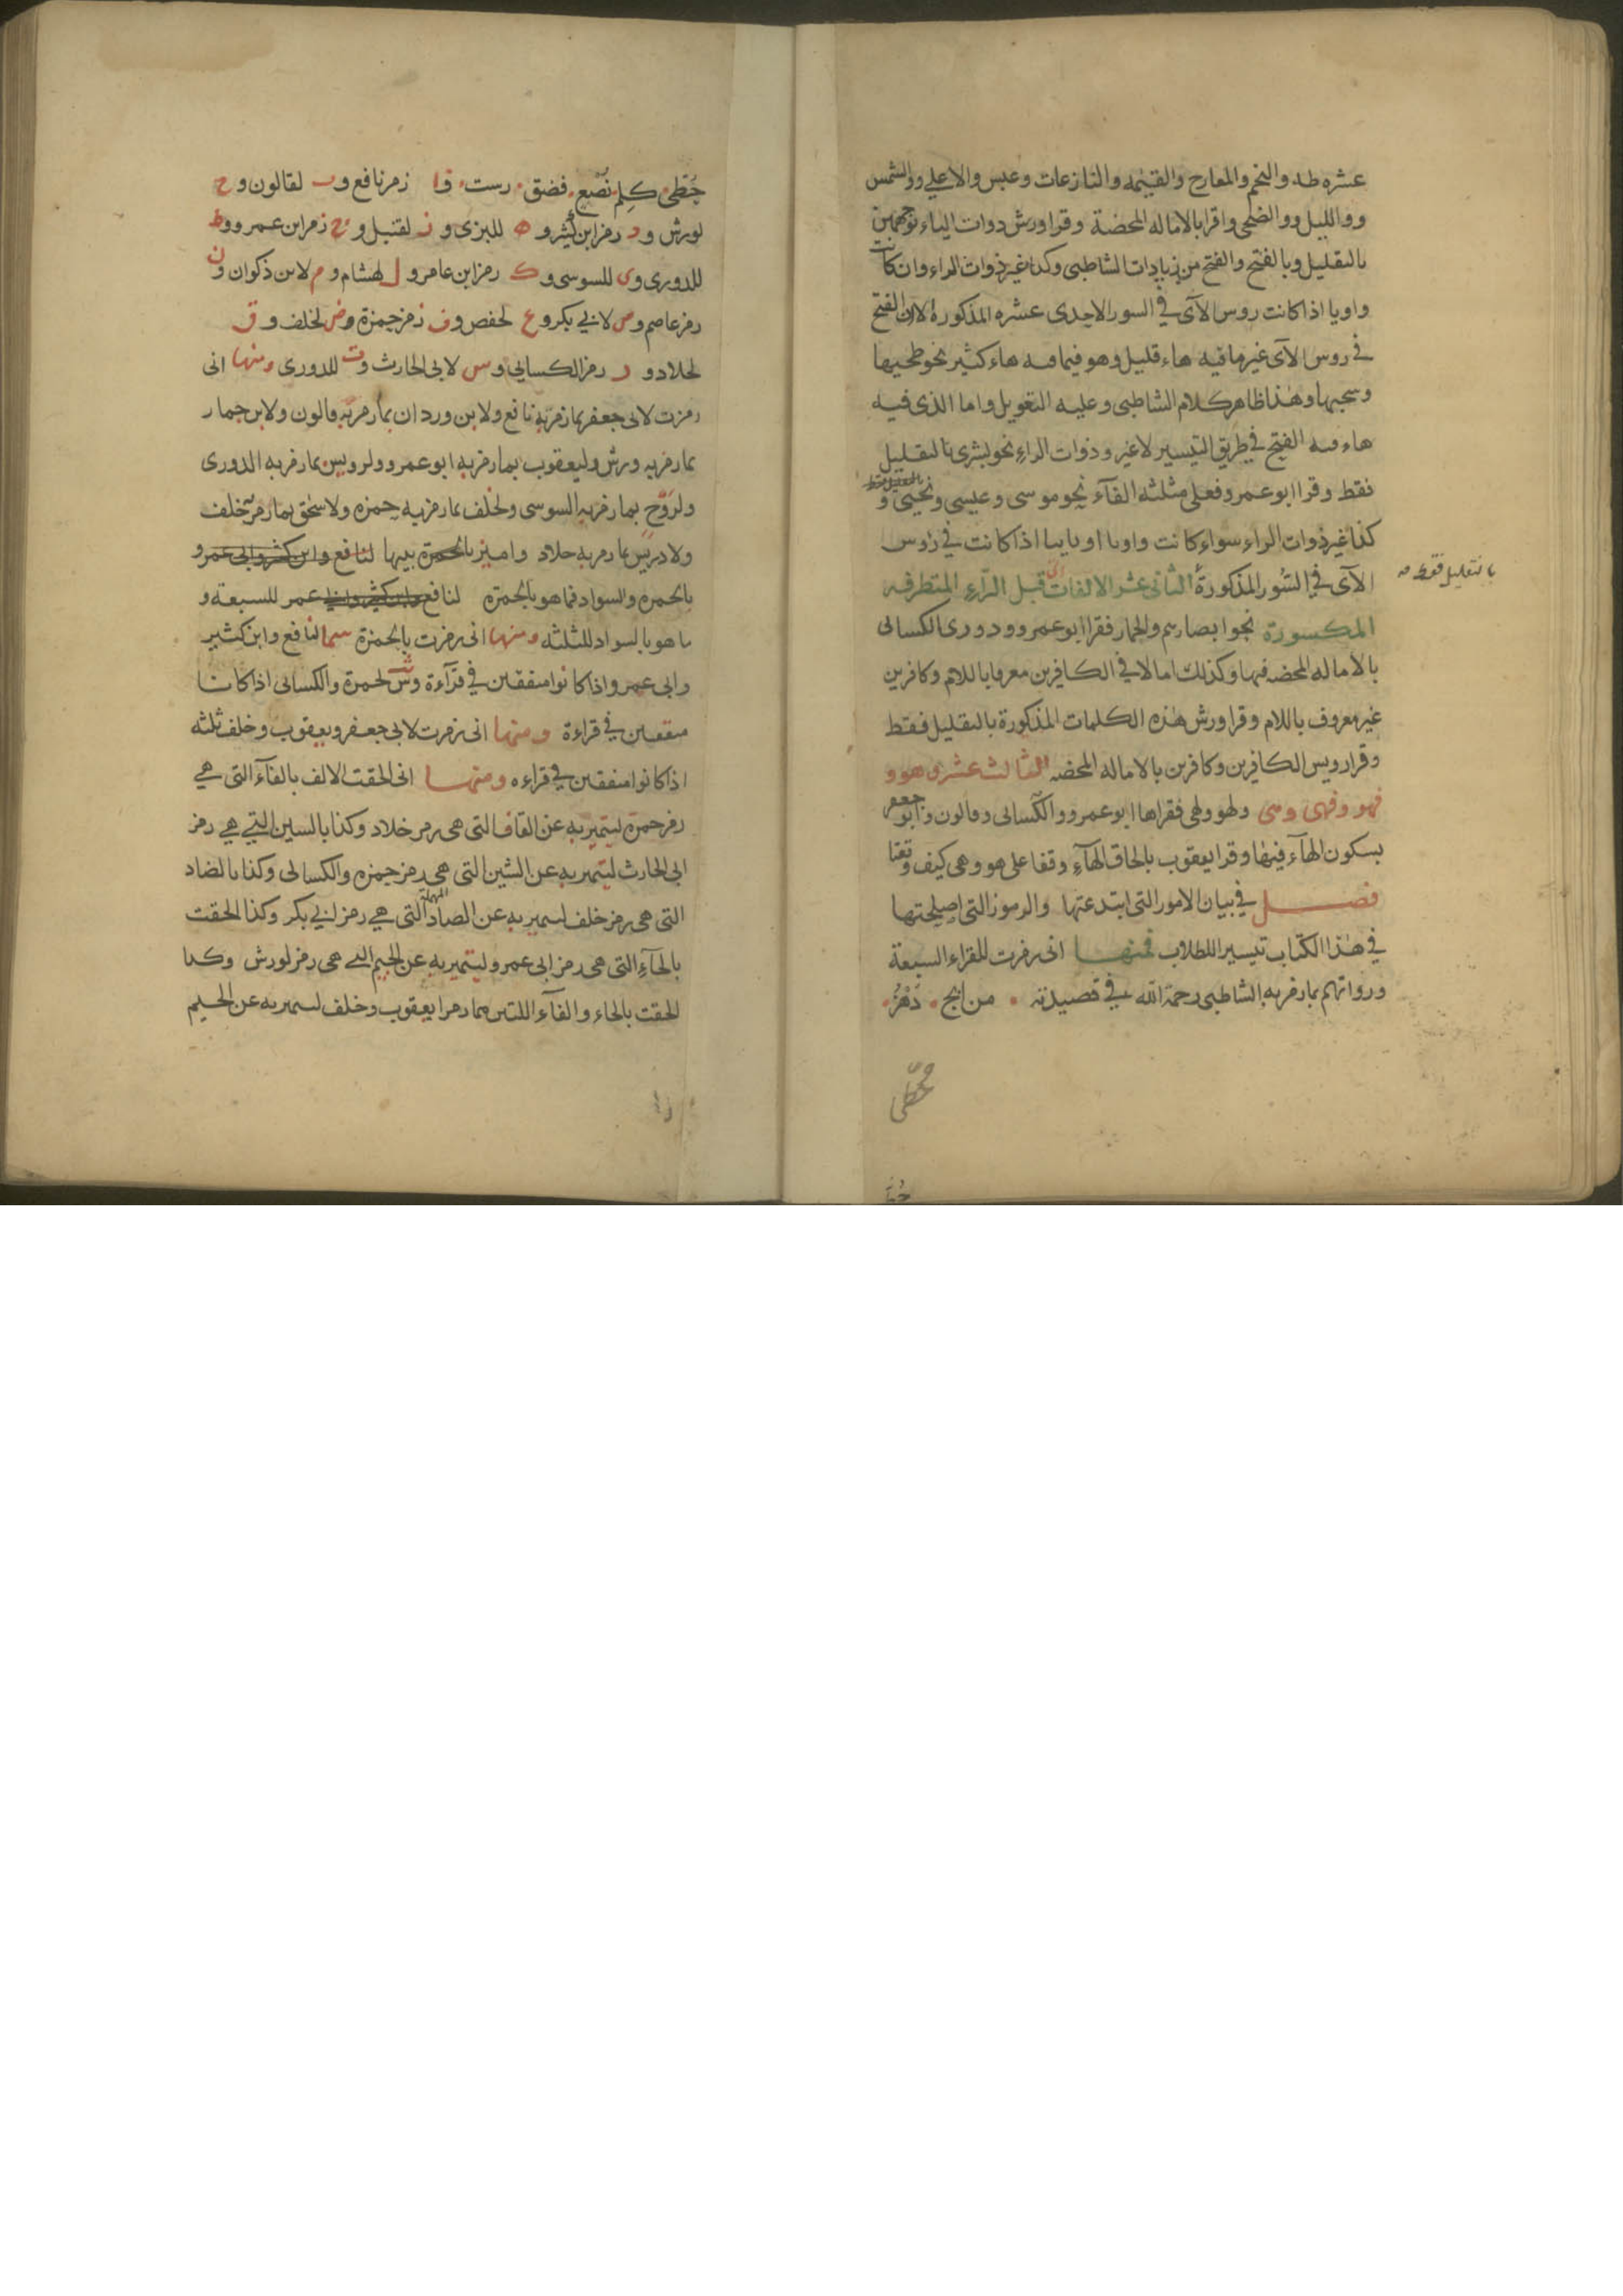 عشره طه والنجم والمعارج والقيٰمه والنازعات وعبس والاعلى ووالشمس
وواللیل ووالضحى واقرا بالاماله المحضة وقرا ورش ذوات الياء بوجهين
بالتقليل وبالفتح والفتح من زيادات الشاطبى وكذا غير ذوات الراء وان كانت
واويا اذا كانت روس الآى فى السور الاحدى عشره المذكورة لان الفتح
فى روس الآى غير ما فيه هاء قليل وهو فيما فيه هاء كثير نحو طحيها
وسجيها وهٰذا ظاهر كلام الشاطبى وعليه التعويل واما الذى فيه
هاء فيه الفتح فى طريق التيسير لا غير وذوات الراء نحو بشرى بالتقليل
فقط وقرا ابو عمرو فعلى مثلثه الفآء نحو موسى وعيسى ونحيى و
بالتقليل فقط
كذا غير ذوات الراء سواء كانت واويا او يايا اذا كانت فى رؤس
الآى فى السُور المذكورة الثانى عشر الالفات التى قبل الرّاء المتطرفه
بالتقليل فقط صه
المكسورة نحو ابصارهم والحمار فقرا ابو عمرو ودورى الكسائى
بالاماله المحضه فيها وكذلك امالا فى الكافرين معرفا باللام وكافرين
غير معروف باللام وقرا ورش هٰذه الكلمات المذكورة بالتقليل فقط
وقرا رويس الكافرين وكافرين بالاماله المحضه الثالث عشر وهو و
فهو وفهى وهى ولهو ولهى فقراها ابو عمرو والكسائى وقالون وابو جعفر
بسكون الهآء فيها وقرا يعقوب بالحاق الهآء وقفا على هو وهى كيف وقعا
فصل فى بيان الامور التى ابتدعتها والرموز التى اصطلحتها
فى هٰذا الكتاب تيسيرا للطلاب فمنها انى رمزت للقراء السبعة
ورواتهم بما رمز به الشاطبى رحمة الله فى قصيدته من ابج دَهَزْ
حُطّى
حُطّى كِلِم نَصَع فضق رست فا رمز نافع وب لقالون وج
لورش ود رمز ابن كثير وه للبزى وز لقنبل وح رمز ابن عمرو وط
للدورى وى للسوسى وك رمز ابن عامر ول لهشام وم لابن ذكوان ون
رمز عاصم وص لابى بكر وع لحفص وف رمز حمزة وض لخلف وق
لخلاد ور رمز الكسائى وس لابى الحارث وت للدورى ومنها انى
رمزت لابى جعفر بما رمز به نافع ولابن وردان بما رمز به قالون ولابن جمار
بما رمز به ورش وليعقوب بما رمز به ابو عمرو ولرويس بما رمز به الدورى
ولرَوْح بما رمز به السوسى ولخلف بما رمز به حمزه ولاسحق بما رمز به خلف
ولادريس بما رمز به خلاد واميز بالحمرة بينها لنافع وابن كثير وابى عمرو
بالحمره والسواد فما هو بالحمرة لنافع وابن كثير وابى عمر للسبعة و
ما هو بالسواد للثلثه ومنها انى رمزت بالحمرة سما لنافع وابن كثير
وابى عمرو اذا كانوا متفقين فى قرآءة وش لحمزة والكسائى اذا كانا
متفقين فى قراءة ومنها انى رمزت لابى جعفر ويعقوب وخلف ثلثه
اذا كانوا متفقين فى قراءه ومنها انى الحقت الالف بالفآء التى هى
رمز حمزة ليتميز به عن القاف التى هى رمز خلاد وكذا بالسين التى هى رمز
ابى الحارث ليتميز به عن الشين التى هى رمز حمزه والكسائى وكذا بالضاد
التى هى رمز خلف ليتميز به عن الصاد المهملة التى هى رمز لابى بكر وكذا الحقت
بالحآء التى هى رمز ابى عمرو ليتميز به عن الجيم التى هى رمز لورش وكذا
الحقت بالحاء والفآء اللتين هما رمزا يعقوب وخلف ليتميز به عن الجيم